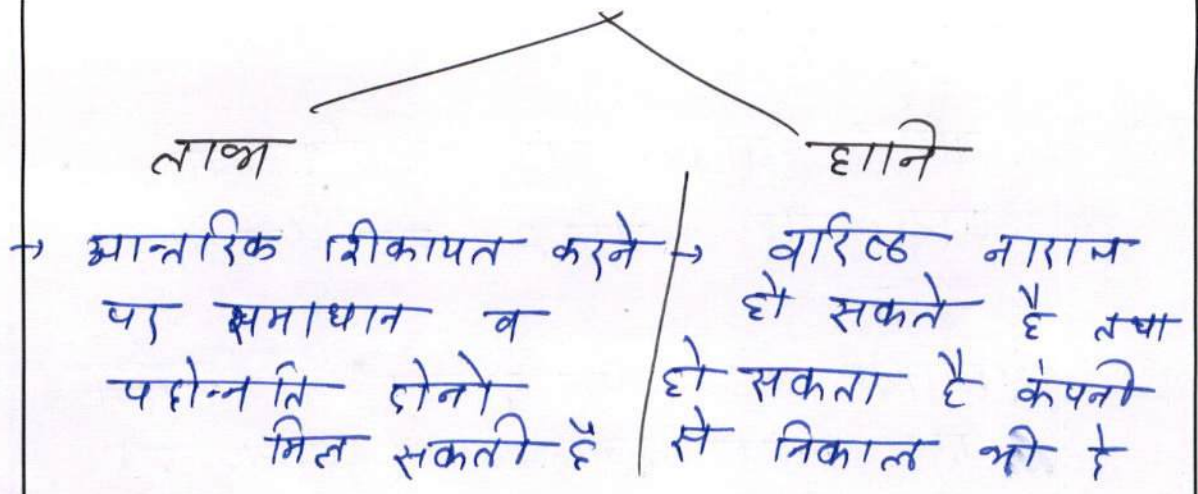 लाभ
हानि
→ आन्तरिक शिकायत करने
पर समाधान व
पदोन्नति दोनो
मिल सकती है
→ वरिष्ठ नाराज
हो सकते है तथा
हो सकता है कंपनी
से निकाल भी दे